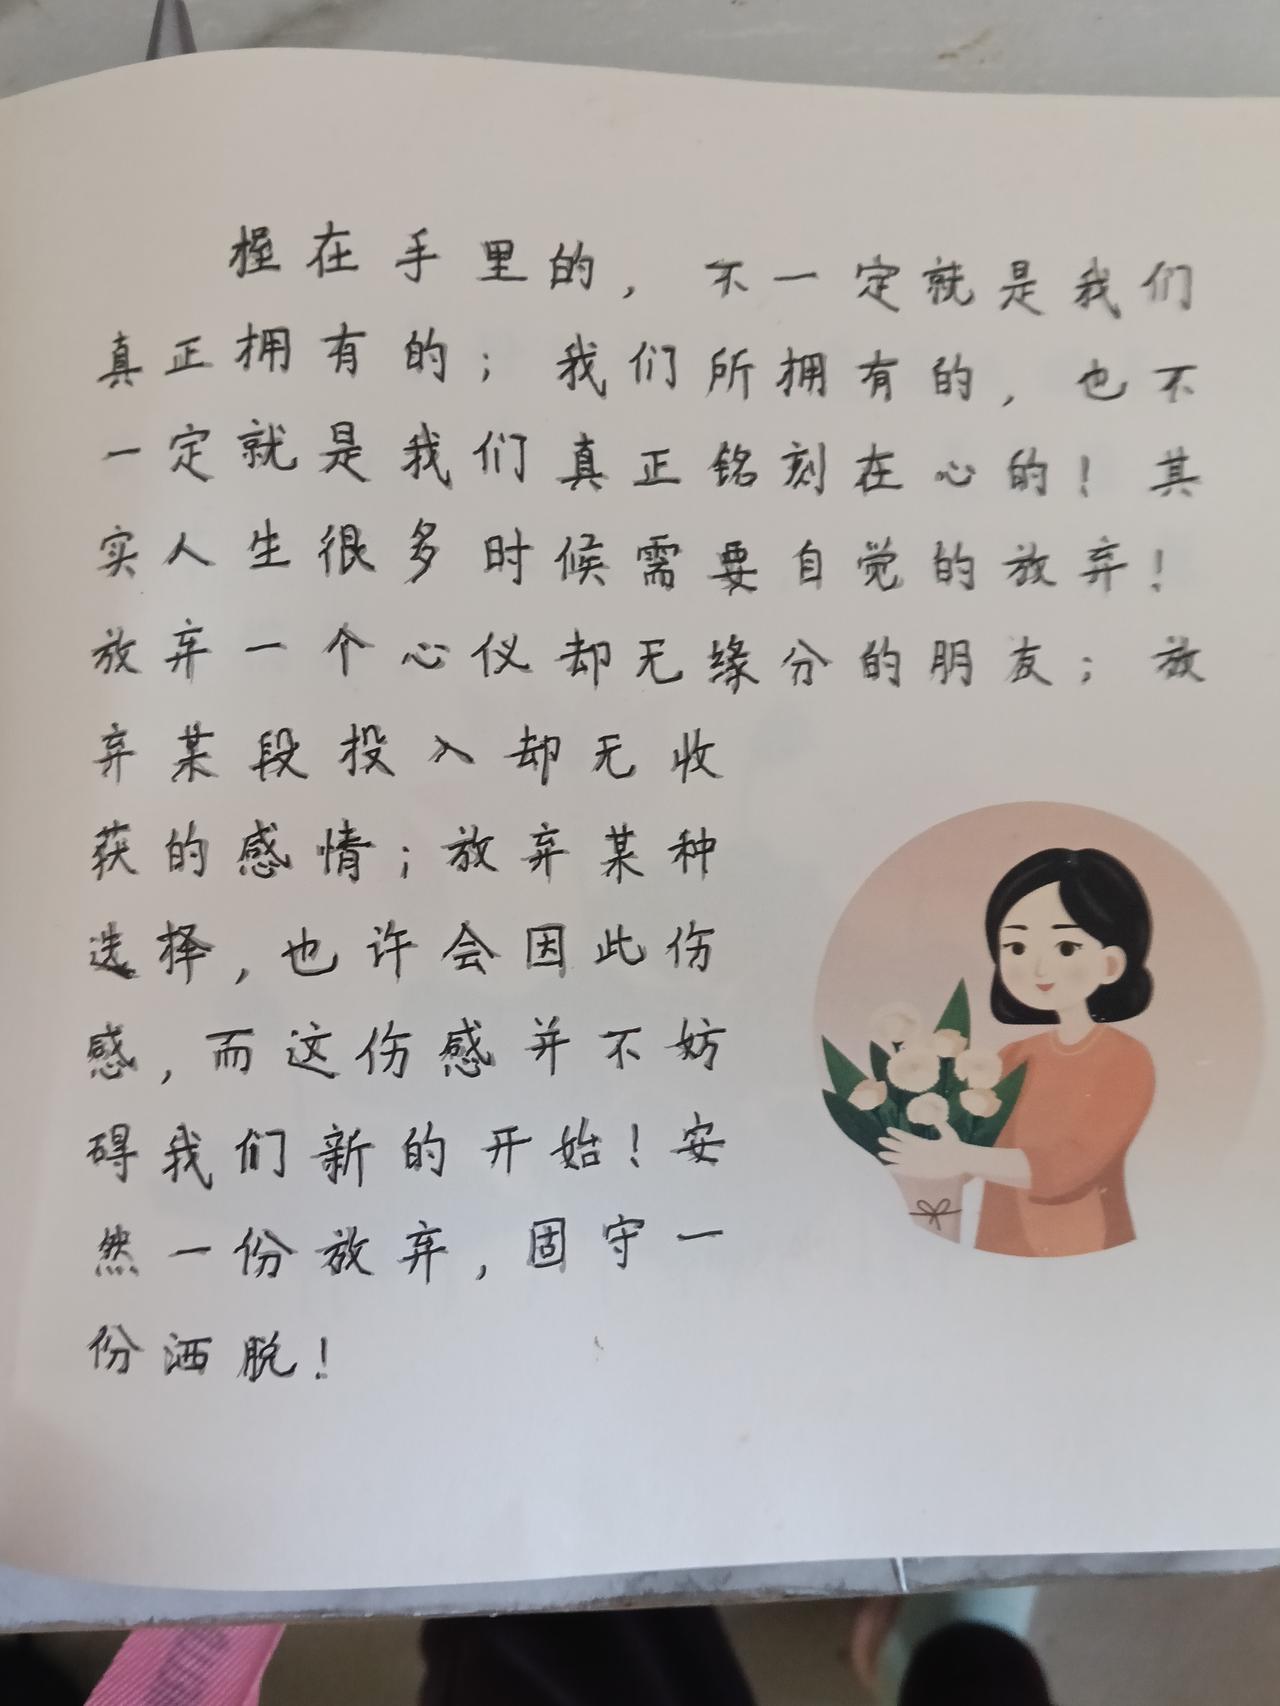 握在手里的，不一定就是我们
真正拥有的；我们所拥有的，也不
一定就是我们真正铭刻在心的！其
实人生很多时候需要自觉的放弃！
放弃一个心仪却无缘分的朋友；放
弃某段投入却无收
获的感情；放弃某种
选择，也许会因此伤
感，而这伤感并不妨
碍我们新的开始！安
然一份放弃，固守一
份洒脱！